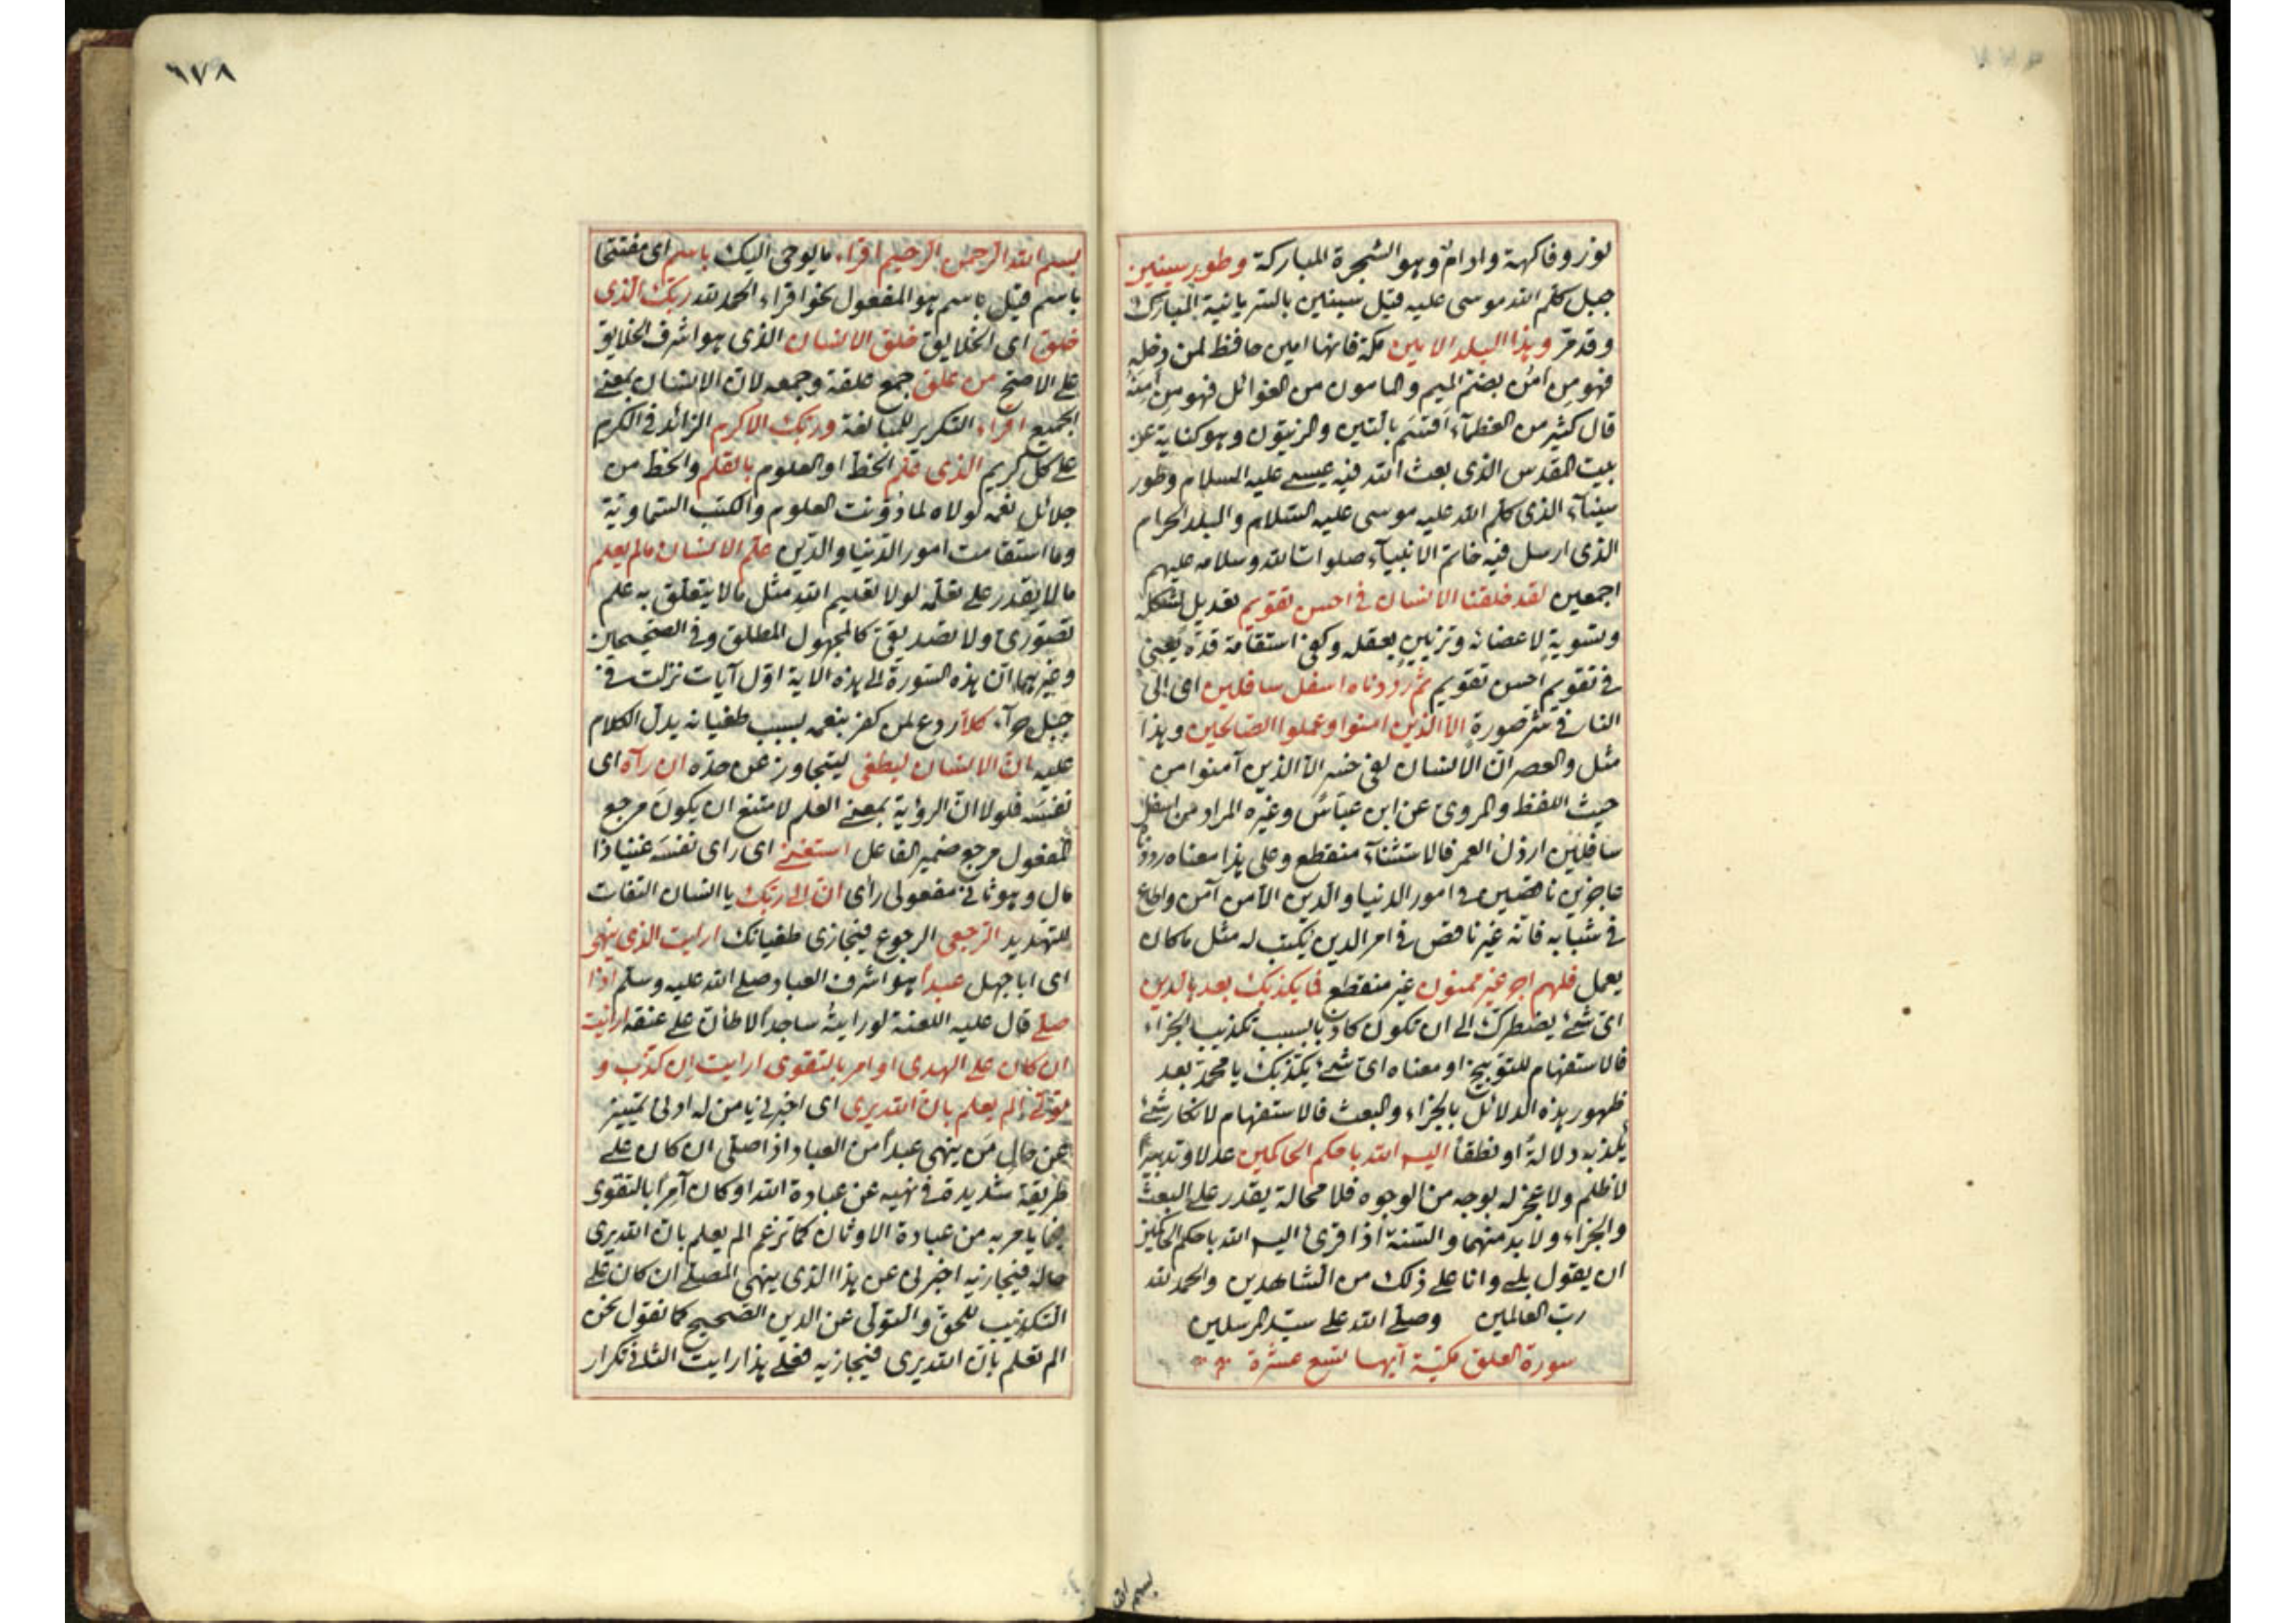 لوزر وفاكهة وادام وهو الشجرة المباركة وطور سينين
جبل كلم الله موسى عليه قيل سينين بالسريانية المبارك
وقد مر وهذا البلد الامين مكة فانها امين حافظ لمن دخله
فهو من امُن بضم الميم والمامون من الغوائل فهو من امنه
قال كثير من العظمآء اقتسَم بالتين والزيتون وهو كناية عن
بيت المقدس الذى بعث الله فيه عيسى عليه السلام وطور
سينآء الذى كلم الله عليه موسى عليه السلام والبلد الحرام
الذى ارسل فيه خاتم الانبيآء صلوات الله وسلامه عليهم
اجمعين لقد خلقنا الانسان فى احسن تقويم تعديل لشكله
وتسوية لاعضائه وتزيين بعقله وكفى استقامة قده يعنى
فى تقويم احسن تقويم ثم رددناه اسفل سافلين اى الى
النار فى شر صورة الا الذين امنوا وعملوا الصالحين وهذا
مثل والعصر ان الانسان لفى خسر الا الذين آمنوا من
حيث اللفظ والمروى عن ابن عباس وغيره المراد من اسفل
سافلين ارذل العمر فالاستثنآء منقطع وعلى هذا معناه رددنا
عاجزين ناقصين فى امور الدنيا والدين الا من آمن واطاع
فى شبابه فانه غير ناقص فى امر الدين يكتب له مثل ما كان
يعمل فلهم اجر غير ممنون غير منقطع فما يكذبك بعد بالدين
اى شئ يضطرك الى ان تكون كاذبا بسبب تكذيب الجزاء
فالاستفهام للتوبيخ او معناه اى شئ يكذبك يا محمد بعد
ظهور هذه الدلائل بالجزاء والبعث فالاستفهام لانكار شئ
يكذبه دلالةً او نطقاً اليس الله باحكم الحاكمين عدلا وتدبيرا
لا ظلم ولا عجز له بوجه من الوجوه فلا محالة يقدر على البعث
والجزاء ولا بد منهما والسنة اذا قرئ اليس الله باحكم الحاكمين
ان يقول بلى وانا على ذلك من الشاهدين والحمد لله
رب العالمين وصلى الله على سيد المرسلين
سورة العلق مكية آيها تسع عشرة
بسم الله
٦٧٨
بسم الله الرحمن الرحيم اقراء ما يوحى اليك باسم اى مفتتحا
باسم قيل باسم هو المفعول نحو اقراء الحمد لله ربك الذى
خلق اى الخلايق خلق الانسان الذى هو اشرف الخلايق
على الاصح من علق جمع علقة وجمعه لان الانسان بمعنى
الجميع اقراء التكرير للمبالغة وربك الاكرم الزائد فى الكرم
على كل كريم الذى علم الخط او العلوم بالقلم والخط من
جلائل نعمه لولاه لما دُوّنت العلوم والكتب السماوية
وما استقامت امور الدنيا والدين علم الانسان ما لم يعلم
ما لا يقدر على تعلمه لولا تعليم الله مثل ما لا يتعلق به علم
تصورى ولا تصديقى كالمجهول المطلق وفى الصحيحين
وغيرهما ان هذه السورة الى هذه الاية اول آيات نزلت فى
جبل حرآء كلا ردع لمن كفر بنعمه بسبب طغيانه يدل الكلام
عليه ان الانسان ليطغى ليتجاوز عن حده ان رآه اى
نفسَه فلولا ان الرواية بمعنى العلم لامتنع ان يكون مرجع
المفعول مرجع ضمير الفاعل استغنى اى راى نفسَه غنيا ذا
مال وهو ثانى مفعولى رأى ان الى ربك يا انسان التفات
للتهديد الرجعى الرجوع فيجازى طغيانك ارايت الذى ينهى
اى ابا جهل عبداً هو اشرف العباد صلى الله عليه وسلم اذا
صلى قال عليه اللعنة لو رايته ساجداً لاطأن على عنقه ارايت
ان كان على الهدى او امر بالتقوى ارايت ان كذب و
تولى الم يعلم بان الله يرى اى اخبرنى يا من له ادنى تمييز
عن حال مَن ينهى عبداً من العباد اذا صلى ان كان على
طريقة سديدة فى نهيه عن عبادة الله او كان آمراً بالتقوى
فيما يامر به من عبادة الاوثان كما تزعم الم يعلم بان الله يرى
حاله فيجازيه اخبرنى عن هذا الذى ينهى المصلى ان كان على
التكذيب للحق والتولى عن الدين الصحيح كما نقول نحن
الم تعلم بان الله يرى فيجازيه فعلى هذا ارايت الثانى تكرار